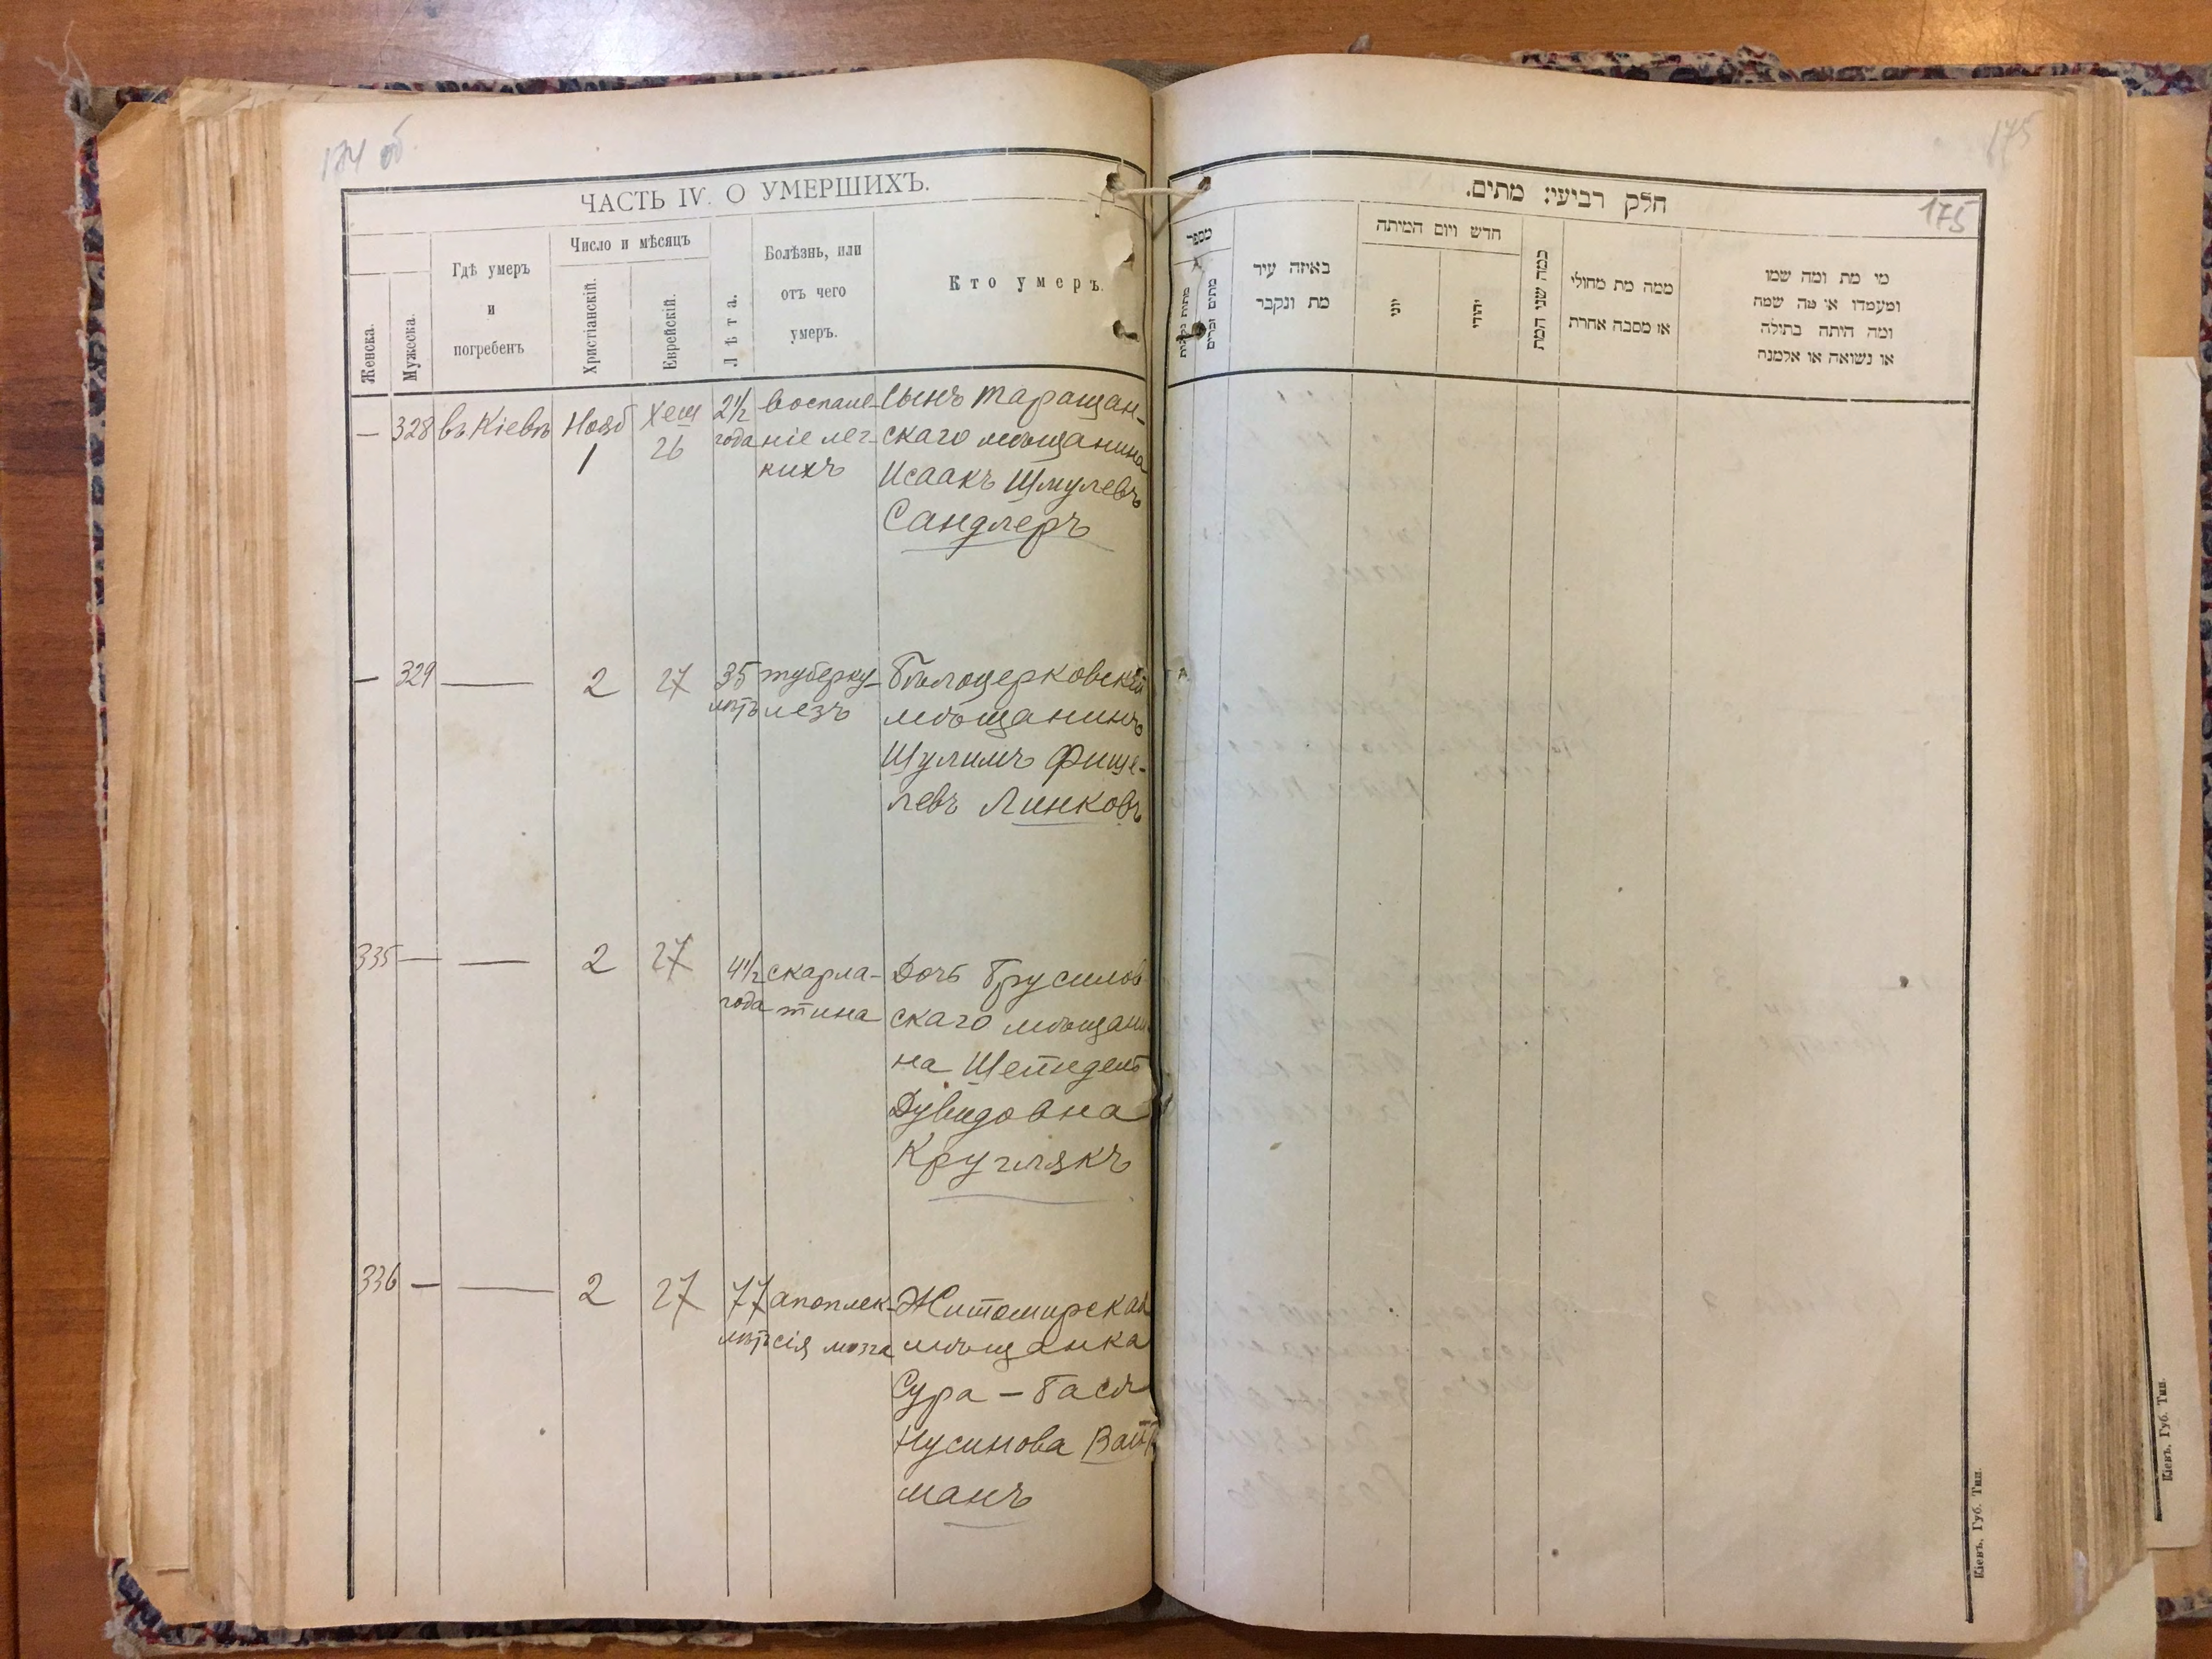 174 об
ЧАСТЬ IV. О УМЕРШИХЪ.
Женска.
Мужеска.
Гдѣ умеръ
и
погребенъ
Число и мѣсяцъ
Христіанскій.
Еврейскій.
Лѣта.
Болѣзнь, или
отъ чего
умеръ.
Кто умеръ.
— 328 въ Кіевѣ Нояб Хеш 2½ воспале- Сынъ Таращан-
1 26 года ніе лег- скаго мѣщанина
кихъ Исаакъ Шмулевъ
Сандлеръ
— 329 — 2 27 35 туберку- Бѣлоцерковскій
лѣтъ лезъ мѣщанинъ
Шулимъ Фише-
левъ Линковъ
335 — — 2 27 4½ скарла- Дочь Брусилов
года тина скаго мѣщани
на Шейндель
Дувидовна
Круглякъ
336 — — 2 27 77 апоплек- Житомирская
лѣтъ сія мозга мѣщанка
Сура-Бася
Нусинова
манъ
175
175
חלק רביעי: מתים.
מספר
מתים זכרים
באיזה עיר
מת ונקבר
חדש ויום המיתה
יוני
יהודי
כמה שני המת
ממה מת מחולי
או מסבה אחרת
מי מת ומה שמו
ומעמדו או מה שמה
ומה היתה בתולה
או נשואה או אלמנה
Кіевъ, Губ. Тип.
Кіевъ, Губ. Тип.